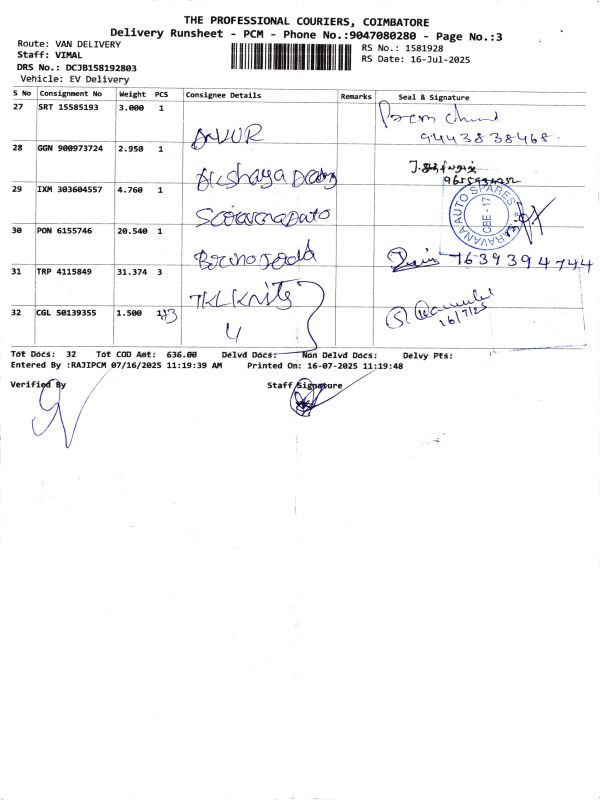 THE PROFESSIONAL COURIERS, COIMBATORE
Delivery Runsheet - PCM - Phone No.:9047080280 - Page No.:3
Route: VAN DELIVERY
Staff: VIMAL
DRS No.: DCJB158192803
Vehicle: EV Delivery
RS No.: 1581928
RS Date: 16-Jul-2025
S No Consignment No Weight PCS Consignee Details Remarks Seal & Signature
27 SRT 15585193 3.000 1 ANKUR
9443838468
28 GGN 900973724 2.950 1 Akshaya
29 IXM 303604557 4.760 1
SARAVANA AUTO SPARES
CBE-17
30 PON 6155746 20.540 1
7639394744
31 TRP 4115849 31.374 3 TKL Knits
32 CGL 50139355 1.500 1
16/7/25
Tot Docs: 32 Tot COD Amt: 636.00 Delvd Docs: Non Delvd Docs: Delvy Pts:
Entered By :RAJIPCM 07/16/2025 11:19:39 AM Printed On: 16-07-2025 11:19:48
Verified By Staff Signature